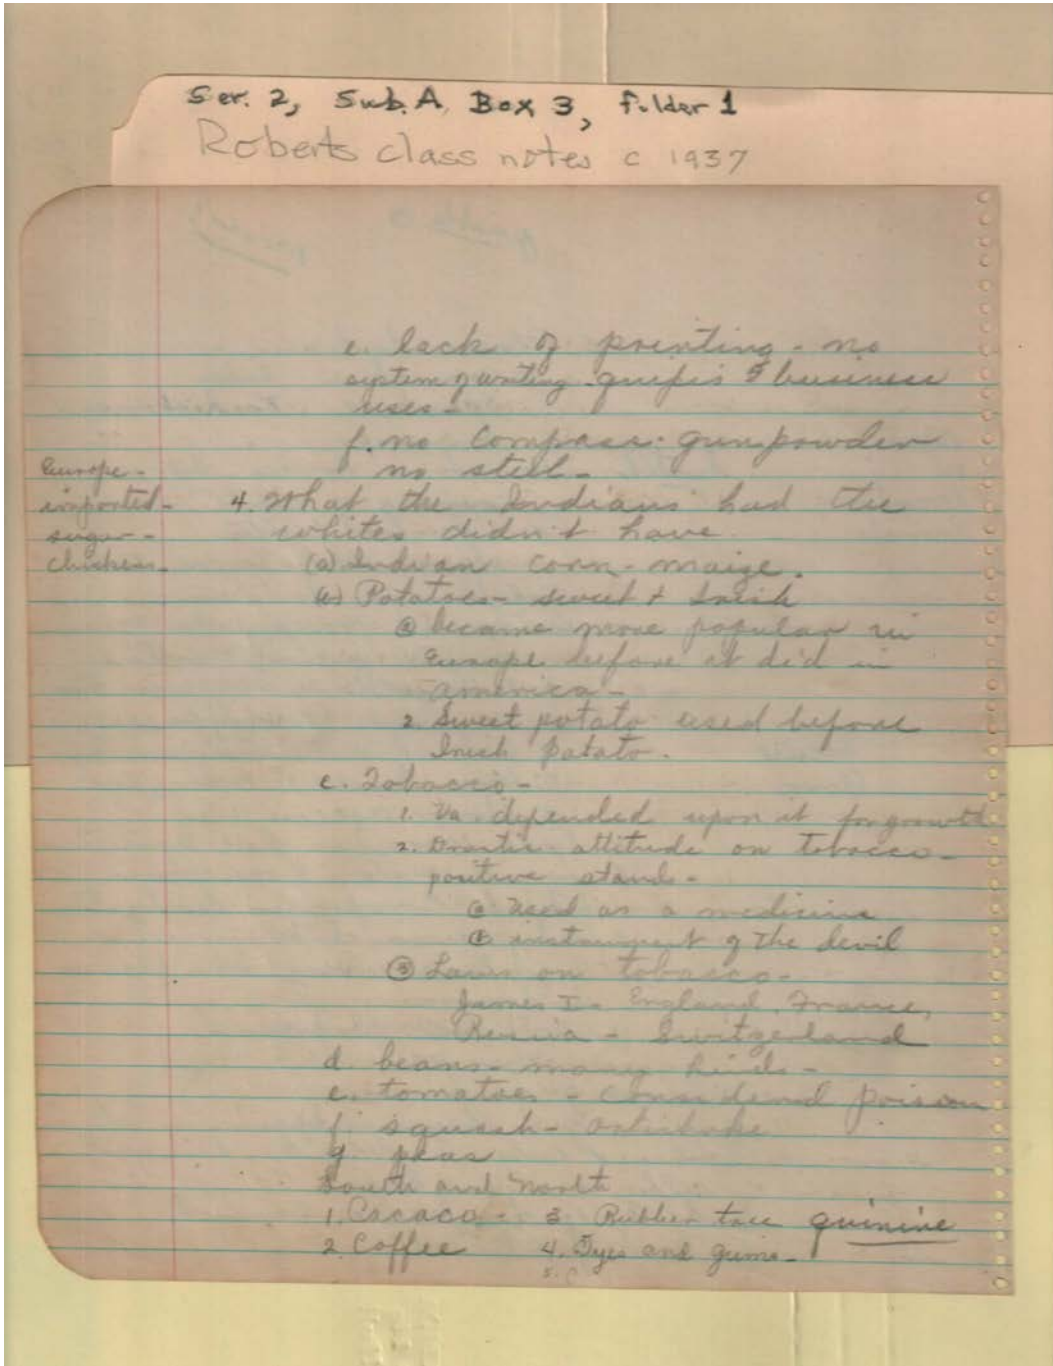 Ser. 2, Sub. A, Box 3, folder 1
Roberts class notes c 1937
e. lack of printing - no
system of writing - business
uses -
f. no compass: gunpowder
no steel -
Europe -
imported -
sugar -
chickens -
4. What the Indians had the
whites didn't have
(a) Indian corn - maize.
Potatoes - sweet + Irish
became more popular in
Europe before it did in
America -
2. Sweet potato used before
Irish potato.
c. Tobacco -
1. Va. depended upon it for growth
2. Drastic attitude on tobacco -
positive stands -
(a) Used as a medicine
(b) instrument of the devil
(3) Laws on tobacco -
James I - England, France,
Russia - Switzerland
d. beans - many kinds -
e. tomatoes - considered poison
f. squash - artichoke
g. peas
South and North
1. Cacao - 3. Rubber tree quinine
2. Coffee 4. Dyes and gums -
5.